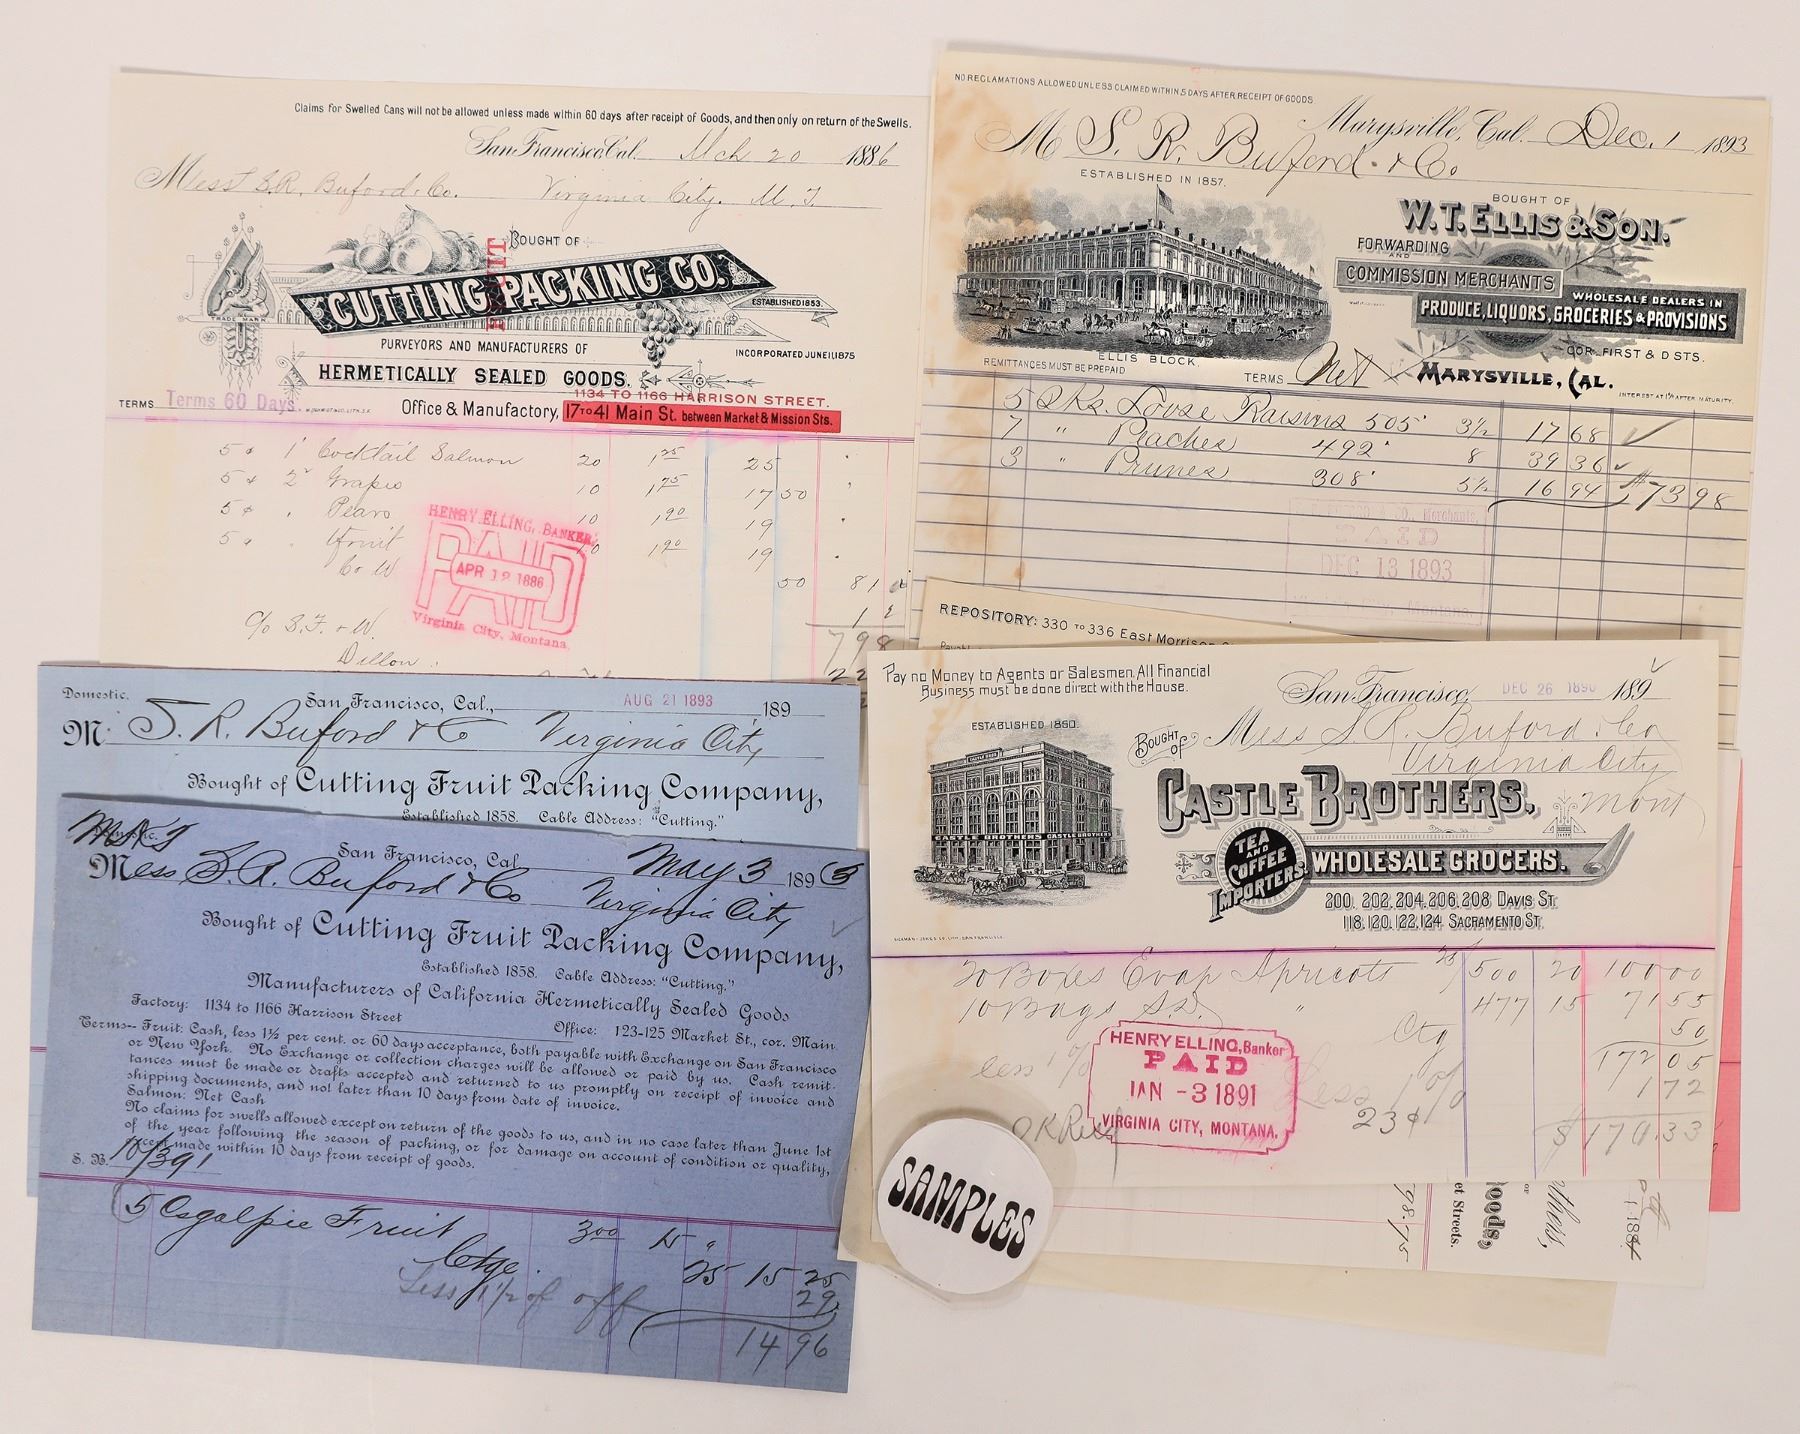 Claims for Swelled Cans will not be allowed unless made within 60 days after receipt of Goods, and then only on return of the Swells.
San Francisco Cal. Mch 20 1886
Mess S. R. Buford & Co. Virginia City. M. T.
BOUGHT OF
CUTTING PACKING CO.
FRUIT
ESTABLISHED 1853.
TRADE MARK
PURVEYORS AND MANUFACTURERS OF
INCORPORATED JUNE 11, 1875
HERMETICALLY SEALED GOODS.
1134 TO 1166 HARRISON STREET.
TERMS Terms 60 Days.
Office & Manufactory, 17 TO 41 Main St. between Market & Mission Sts.
5 c 1 Cocktail Salmon 20 1.25 25
5 c 2 Grapes 10 1.75 17 50
5 c " Pears 10 1.90 19
5 c " 10 1.90 19
50 81
HENRY ELLING, BANKER,
PAID
APR 12 1886
Virginia City, Montana.
c/o
Dillon.
798
NO RECLAMATIONS ALLOWED UNLESS CLAIMED WITHIN 5 DAYS AFTER RECEIPT OF GOODS
Marysville, Cal. Dec. 1 1893
M S. R. Buford & Co
ESTABLISHED IN 1857.
BOUGHT OF
W. T. ELLIS & SON.
FORWARDING
AND
COMMISSION MERCHANTS
WHOLESALE DEALERS IN
PRODUCE, LIQUORS, GROCERIES & PROVISIONS
COR. FIRST & D STS.
ELLIS BLOCK
REMITTANCES MUST BE PREPAID
TERMS Net
MARYSVILLE, CAL.
INTEREST AT 1% AFTER MATURITY.
5 Sks. Loose Raisins 505 3½ 17 68
7 " Peaches 492 8 39 36
3 " Prunes 308 5½ 16 94 $73 98
Merchants
PAID
DEC 13 1893
REPOSITORY: 330 TO 336 East Morrison
Domestic.
San Francisco, Cal., AUG 21 1893 189
M S. R. Buford & Co Virginia City
Bought of Cutting Fruit Packing Company,
Established 1858. Cable Address: "Cutting."
San Francisco, Cal May 3 1893
Mess S. R. Buford & Co Virginia City
Bought of Cutting Fruit Packing Company,
Established 1858. Cable Address: "Cutting."
Manufacturers of California Hermetically Sealed Goods
Factory: 1134 to 1166 Harrison Street
Office: 123-125 Market St., cor. Main
Terms-- Fruit: Cash, less 1½ per cent. or 60 days acceptance, both payable with Exchange on San Francisco
or New York. No Exchange or collection charges will be allowed or paid by us. Cash remit-
tances must be made or drafts accepted and returned to us promptly on receipt of invoice and
shipping documents, and not later than 10 days from date of invoice.
Salmon: Net Cash
No claims for swells allowed except on return of the goods to us, and in no case later than June 1st
of the year following the season of packing, or for damage on account of condition or quality,
except made within 10 days from receipt of goods.
S. B. 10/391
5 Fruit 3.00 15 "
Ctge. 25 15 25
Less 1½ % off 29
14 96
Pay no Money to Agents or Salesmen. All Financial
Business must be done direct with the House.
San Francisco, DEC 26 1890 189
Mess S. R. Buford & Co
Virginia City
Mont
ESTABLISHED 1850.
BOUGHT of
CASTLE BROTHERS.
CASTLE BROTHERS CASTLE BROTHERS
TEA AND COFFEE IMPORTERS.
WHOLESALE GROCERS.
200, 202, 204, 206, 208 DAVIS ST.
118, 120, 122, 124 SACRAMENTO ST.
20 Boxes Evap Apricots 25/ 500 20 100 00
10 Bags " 477 15 71 55
Ctg 50
172 05
less 1% Less 1% 1 72
23¢ $170.33
HENRY ELLING, Banker
PAID
JAN -3 1891
VIRGINIA CITY, MONTANA.
SAMPLES
98.75
et Streets.
oods,
or
thers,
188